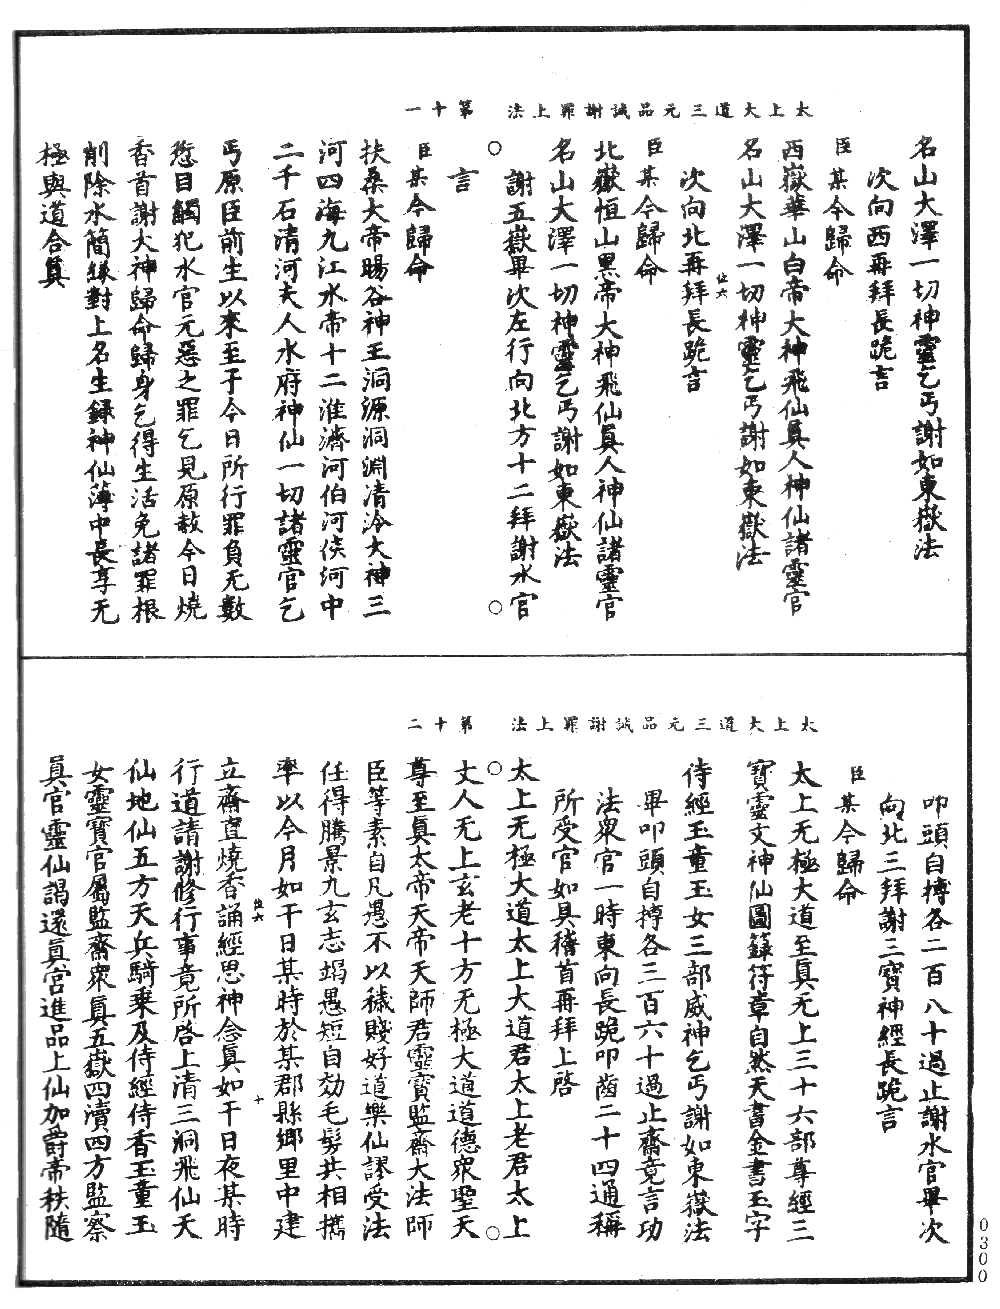 太上大道三元品誡謝罪上法　第十一
名山大澤一切神靈乞丐謝如東嶽法
次向西再拜長跪言
臣某今歸命
西嶽華山白帝大神飛仙真人神仙諸靈官
名山大澤一切神靈乞丐謝如東嶽法
次向北再拜長跪言
臣某今歸命
北嶽恒山黑帝大神飛仙真人神仙諸靈官
名山大澤一切神靈乞丐謝如東嶽法
謝五嶽畢次左行向北方十二拜謝水官
言
臣某今歸命
扶桑大帝暘谷神王洞源洞淵清泠大神三
河四海九江水帝十二淮濟河伯河侯河中
二千石清河夫人水府神仙一切諸靈官乞
丐原臣前生以來至于今日所行罪負无數
愆目觸犯水官元惡之罪乞見原赦今日燒
香首謝大神歸命歸身乞得生活免諸罪根
削除水簡縁對上名生錄神仙簿中長享无
極與道合真
太上大道三元品誡謝罪上法　第十二
叩頭自搏各二百八十過止謝水官畢次
向北三拜謝三寶神經長跪言
臣某今歸命
太上无極大道至真无上三十六部尊經三
寶靈文神仙圖籙符章自然天書金書玉字
侍經玉童玉女三部威神乞丐謝如東嶽法
畢叩頭自搏各三百六十過止齋竟言功
法眾官一時東向長跪叩齒二十四通稱
所受官如具稽首再拜上啓
太上无極大道太上大道君太上老君太上
丈人无上玄老十方无極大道道德眾聖天
尊至真太帝天帝天師君靈寶監齋大法師
臣等素自凡愚不以穢賤好道樂仙謬受法
任得騰景九玄志竭愚短自効毛髮共相攜
率以今月如干日某時於某郡縣鄉里中建
立齋直燒香誦經思神念真如干日夜某時
行道請謝修行事竟所啓上清三洞飛仙天
仙地仙五方天兵騎乘及侍經侍香玉童玉
女靈寶官屬監齋眾真五嶽四瀆四方監察
真官靈仙謁還真宮進品上仙加爵帝秩隨
0300